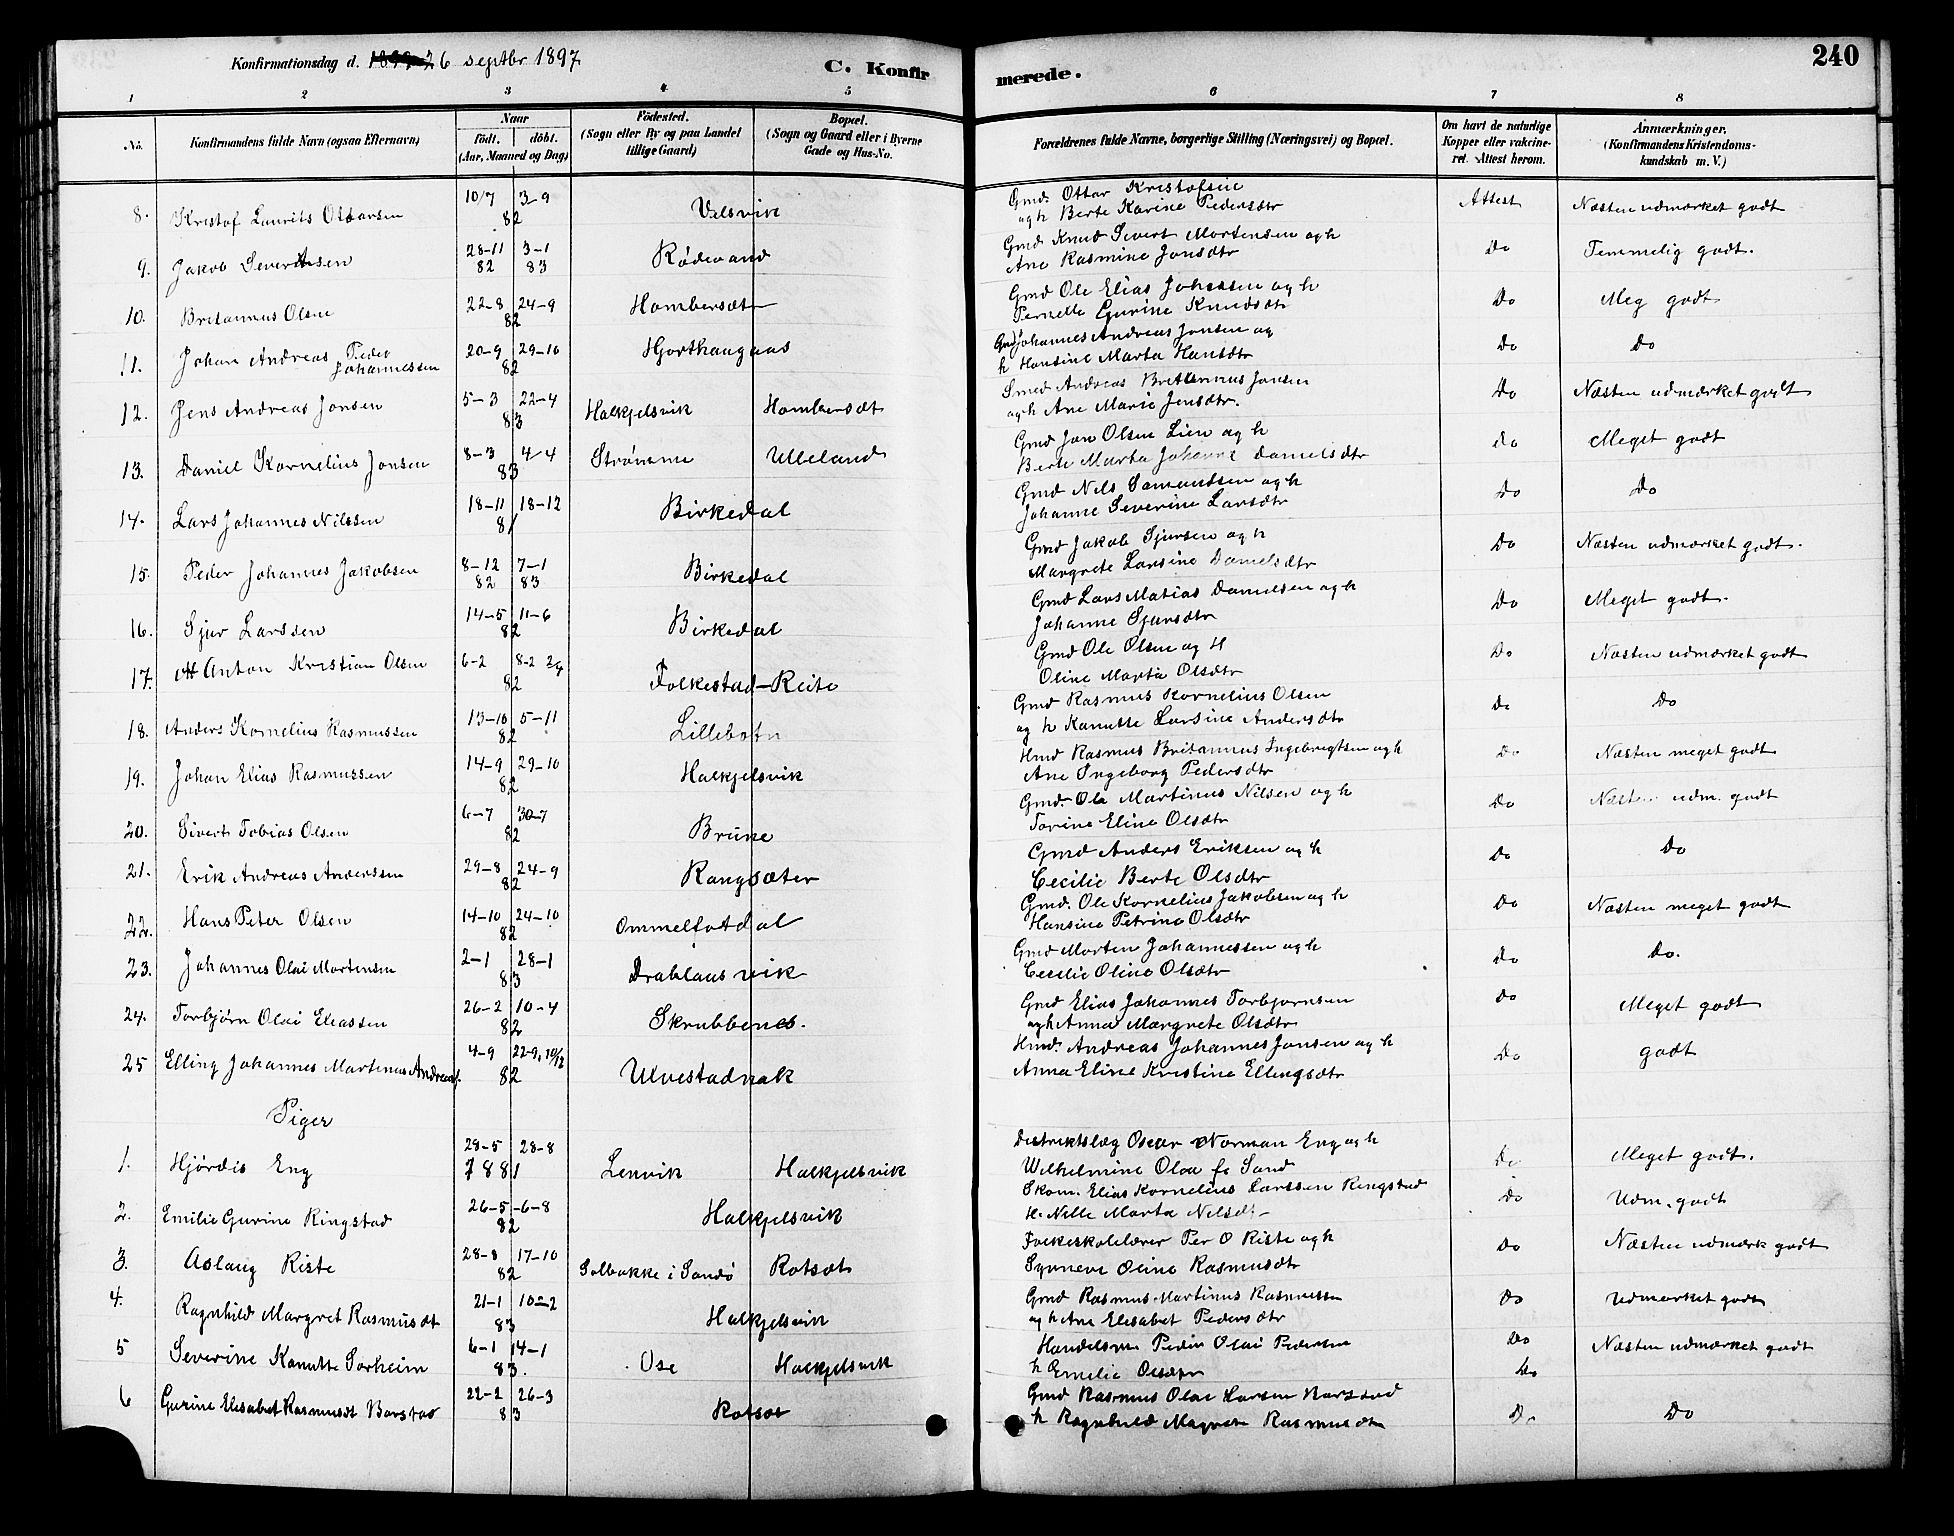 Konfirmationsdag d. 26 septbr 1897
C. Konfirmerede.
240
1 2 3 4 5 6 7 8
No.
Konfirmandens fulde Navn (ogsaa Efternavn)
Naar
födt. döbt.
(Aar, Maaned og Dag)
Födested.
(Sogn eller By og paa Landet tillige Gaard)
Bopæl.
(Sogn og Gaard eller i Byerne Gade og Hus-No.
Forældrenes fulde Navne, borgerlige Stilling (Næringsvei) og Bopæl.
Om havt de naturlige Kopper eller vakcineret. Attest herom.
Anmærkninger.
(Konfirmandens Kristendomskundskab m. V.)
8. Kristof Laurits Ottarsen 10/7 3-9 82 Velsvik Gmd. Ottar Kristofsen Attest Næsten udmærket godt
og h Berte Karine Pedersdtr
9. Jakob Severin Knudsen 28-11 82 3-1 83 Rødevand Gmd Knud Sivert Mortensen og h Do Temmelig godt.
Ane Rasmine Jonsdtr
10. Britannus Olsen 22-8 24-9 82 Hombersæt Gmd Ole Elias Johnsen og h Do Meg godt
Pernelle Gurine Knudsdtr
11. Johan Andreas Peder Johannessen 20-9 29-10 82 Hjorthaugaas Gmd Johannes Andreas Jonsen og Do Do
h Hansine Marta Hansdtr
12. Jens Andreas Jonsen 5-3 22-4 83 Halkjelsvik Hombersæt Smed Andreas Britannus Jonsen Do Næsten udmærket godt
og h Ane Marie Jensdtr.
13. Daniel Kornelius Jonsen 8-3 4-4 83 Strømme Ulleland Gmd Jon Olsen Lien og h Do Meget godt
Berte Marta Johanne Danielsdtr
14. Lars Johannes Nilssen 18-11 18-12 81 Birkedal Gmd Nils Samundsen og h Do Do
Johanne Severine Larsdtr
15. Peder Johannes Jakobsen 8-12 82 7-1 83 Birkedal Gmd Jakob Sjursen og h Do Næsten udmærket godt.
Margrete Larsine Danielsdtr
16. Sjur Larssen 14-5 11-6 82 Birkedal Gmd Lars Matias Danielsen og h Do Meget godt.
Johanne Sjursdtr
17. Anton Kristian Olsen 6-2 8-2 82 Folkestad-Reite Gmd Ole Olsen og H Do Næsten udmærket godt
Oline Marta Olsdtr
18. Anders Kornelius Rasmussen 13-10 5-11 82 Lillebotn Gmd Rasmus Kornelius Olsen Do Do
og h Kanutte Larsine Andersdtr
19. Johan Elias Rasmussen 14-9 29-10 82 Halkjelsvik Hmd Rasmus Britannus Ingebrigtsen og h Do Næsten meget godt
Ane Ingeborg Pedersdtr
20. Sivert Tobias Olsen 6-7 30-7 82 Brune Gmd. Ole Martinus Nilsen og h Do Næsten udm. godt
Torine Eline Olsdtr
21. Erik Andreas Anderssen 29-8 24-9 82 Rangsæter Gmd Anders Eriksen og h Do Do
Cecilie Berte Olsdtr
22. Hans Peter Olsen 14-10 24-10 82 Ommelfotdal Gmd. Ole Kornelius Jakobsen og h Do Næsten meget godt
Hansine Petrine Olsdtr
23. Johannes Olai Mortensen 2-1 28-1 83 Drablausvik Gmd Morten Johannessen og h Do Do.
Cecilie Oline Olsdtr
24. Torbjörn Olai Eliassen 26-2 10-4 82 Skrubbenes. Gmd Elias Johannes Torbjornsen Do Meget godt
og h Anna Margrete Olsdtr
25 Elling Johannes Martinus Andreas. 4-9 22-9, 10/12 82 Ulvestadnak Hmd. Andreas Johannes Jonsen og h Do godt
Anna Eline Kristine Ellingsdtr
Piger
1. Hjördis Eng 28-5 28-8 1881 Lenvik Halkjelsvik Distriktslæg Oscar Norman Eng og h Do Meget godt.
Wilhelmine Olea f. Sand
2. Emilie Gurine Ringstad 26-5 6-8 82 Halkjelsvik Skom. Elias Kornelius Larssen Ringstad Do Udm. godt
H. Nille Marta Nilsdt
3. Aslaug Riste 28-8 17-10 82 Solbakke i Sandö Rotsæt Folkeskolelærer Per O Riste og h Do Næsten udmærk godt
Synneve Oline Rasmusdtr
4. Ragnhild Margret Rasmusdt 21-1 10-2 83 Halkjelsvik Gmd Rasmus Martinus Rasmussen Do Udmærket godt
og h Ane Elisabet Pedersdtr
5 Severine Kanutte Sorheim 6-1 14-1 83. Ose Halkjelsvik Handelsm Peder Olai Pedersen Do Næsten udmærket godt
h Emilie Olsdtr Do
6 Gurine Elisabet Rasmusdt Barstad 22-2 26-3 83 Rotset Gmd Rasmus Olai Larsen Barstad
h Ragnhild Magrete Rasmusdtr Do Do